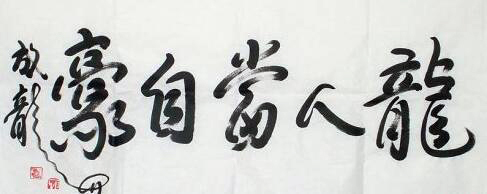 龍人當自豪
龍